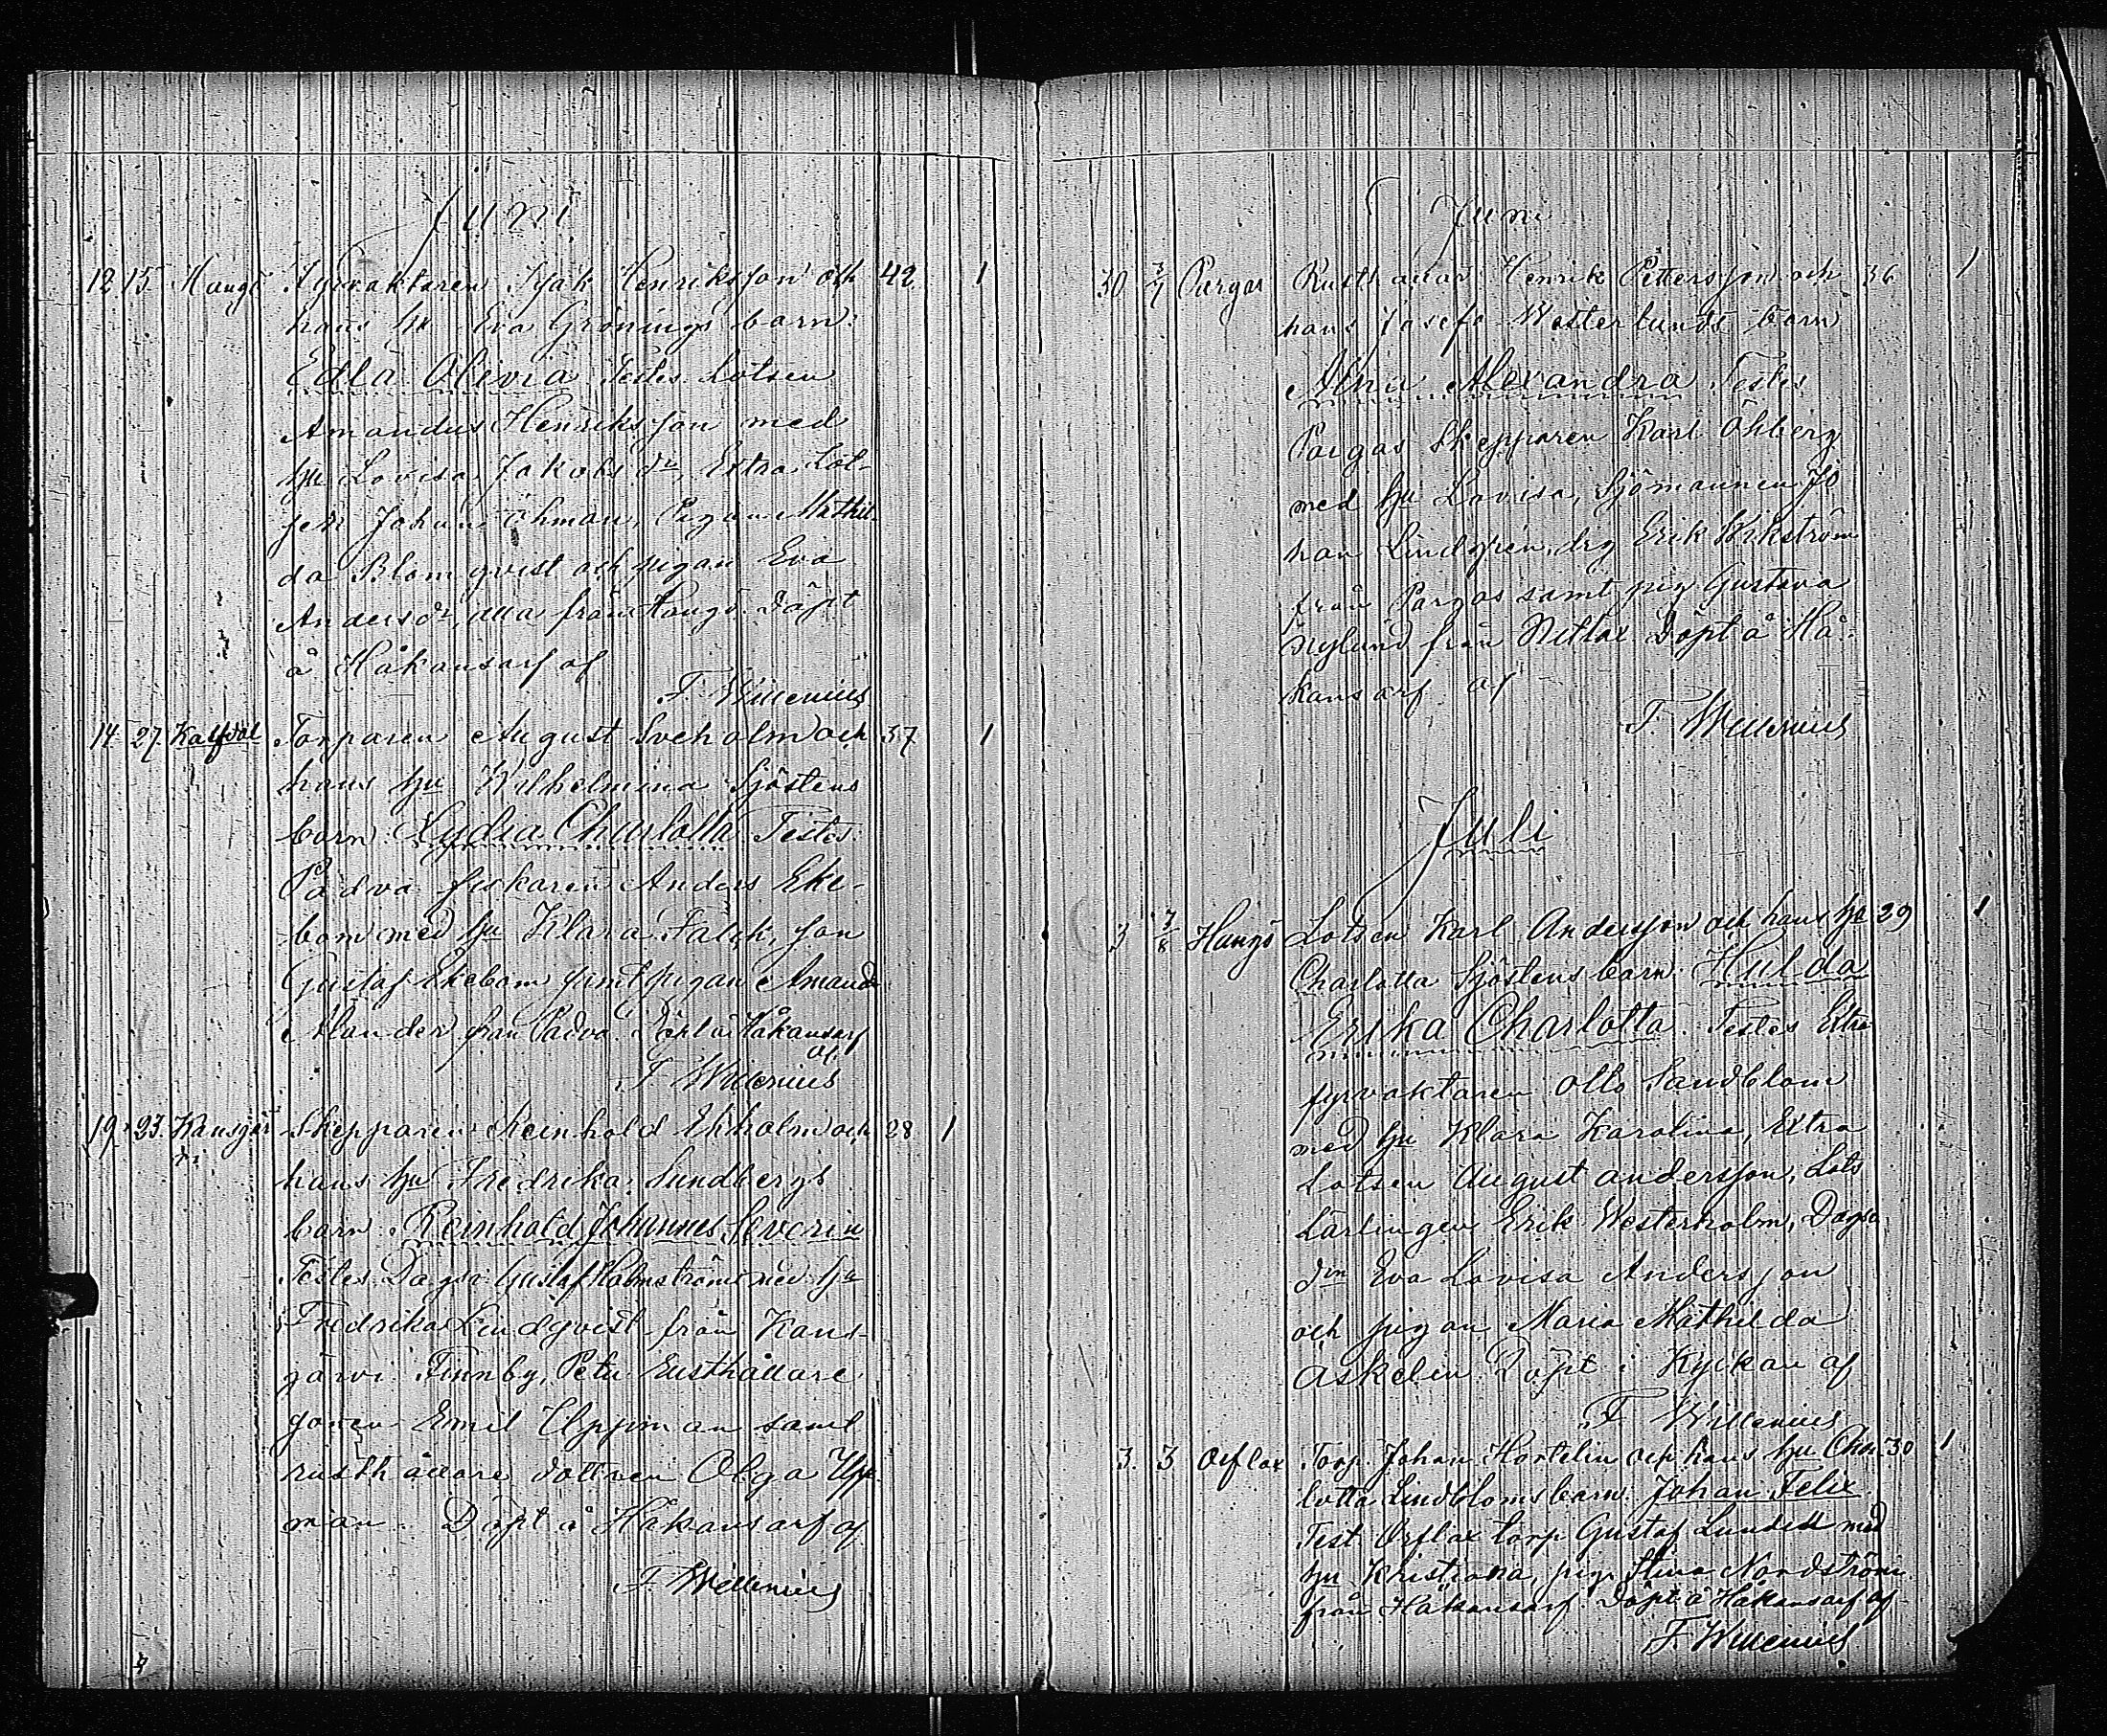 Juni
12. 15. Hangö Fyrvaktaren Isak Henriksson och 42 1
hans hu Eva Grönings barn:
Edla Olivia Testes Lotsen
Amandus Henriksson med
hu Lovisa Jakobs dr, Extra Lot-
sen Johan Öhman, Pigan Mathil-
da Blomqvist och pigan Eva
Andersdr, alla från Hangö. Döpt
å Håkansarf af
F. Willenius
14. 27. Torparen August Sveholm och 37 1
hans hu Wilhelmina Sjöstens
barn Lydia Charlotta Testes:
Padva fiskaren Anders Eke-
bom med hu Klara Falck, son
Gustaf Ekebom samt pigan Amanda
Alander från Padva. Döpt å Håkansarf
af
F. Willenius
19. 23. Skepparen Reinhold Ekholm och 28 1
hans hu Fredrika Sundbergs
barn Reinhold Johannes Severin
Testes Dagsk: Gustaf Holmström med hu
Fredrika Lindqvist från Kans-
järvi Finnby, Petu Rusthållare
sonen Emil Uppman samt
rusthållare dottren Olga Upp-
man. Döpt å Håkansarf af
F. Willenius
Juni
30 3/7 Purgas Rusthållar Henrik Pettersson och 36 1
hans Josefa Westerlunds barn
Alma Alexandra Testes
Pargas Skepparen Karl Öhberg
med hu Lovisa, Sjömannen Jo
han Lindgren, drg Erik Wikström
från Pargas samt pig Gustava
Nylund från Netlax Döpt å Hå-
kansarf af
F. Willenius
Juli
3 7/8 Hangö Lotsen Karl Andersson och hans hu 29 1
Charlotta Sjöstens barn Hulda
Erika Charlotta. Testes Extra
fyrvaktaren Otto Sandblom
med hu Klara Karolina, Extra
Lotsen August Andersson, Lots
Lärlingen Erik Westerholm,
Eva Lovisa Andersson
och pigan Maria Mathilda
Askelin Döpt i Kyrkan af
F. Willenius
3. 3 Orflax Torp. Johan Hortelin och hans hu Cha 30 1
lotta Lindbloms barn Johan Felix
Test. Orflax torp Gustaf Lundell med
hu Kristiana, pig. Stina Nordström
från Håkansarf. Döpt å Håkansarf af
F. Willenius